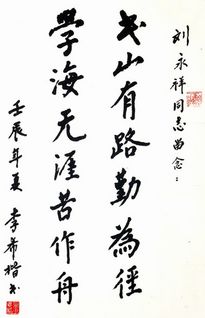 刘永祥同志留念：
书山有路勤為徑
學海无涯苦作舟
壬辰年夏 李希楷书